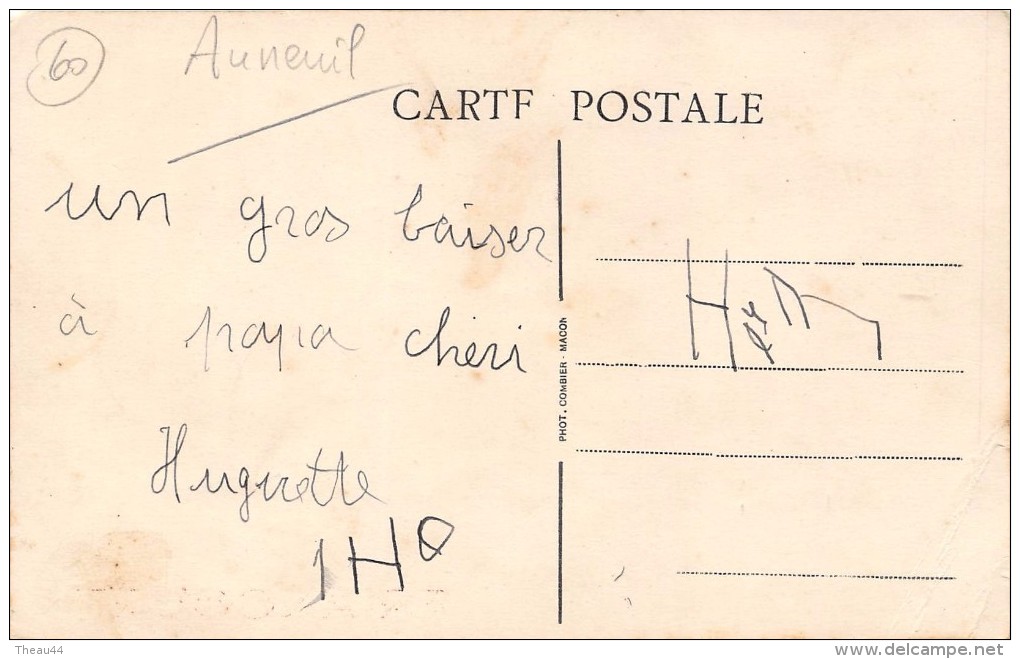 60 Auneuil
CARTE POSTALE
un gros baiser
à papa chéri
Huguette
PHOT. COMBIER - MACON
Theau44
www.delcampe.net